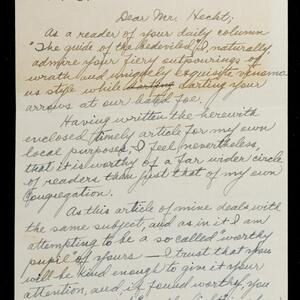 Dear Mr. Hecht;
As a reader of your daily column
"The guide of the bedeviled" I, naturally,
admire your fiery outpourings of
wrath and uniquely exquisite venomo-
us style while darting darting your
arrows at our hated foe.
Having written the herewith
enclosed timely article for my own
local purposes, I feel nevertheless,
that it is worthy of a far wider circle
of readers than just that of my own
Congregation.
As this article of mine deals with
the same subject, and as in it I am
attempting to be a so called "worthy
pupil of yours — I trust that you
will be kind enough to give it your
attention, and, if found worthy, you